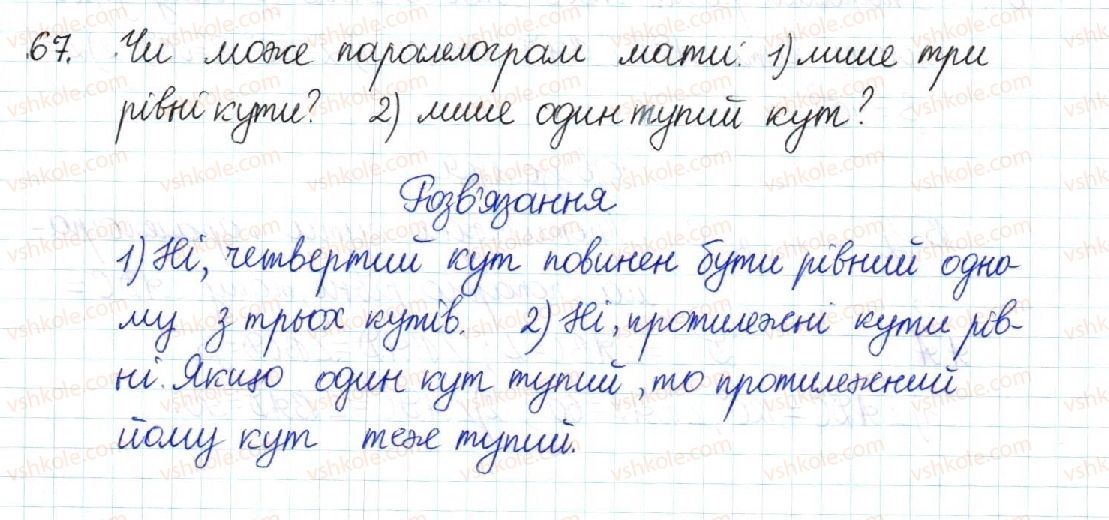 67. Чи може паралелограм мати: 1) лише три
рівні кути? 2) лише один тупий кут?
Розв'язання
1) Ні, четвертий кут повинен бути рівний одно-
му з трьох кутів. 2) Ні, протилежні кути рів-
ні. Якщо один кут тупий, то протилежний
йому кут теж тупий.